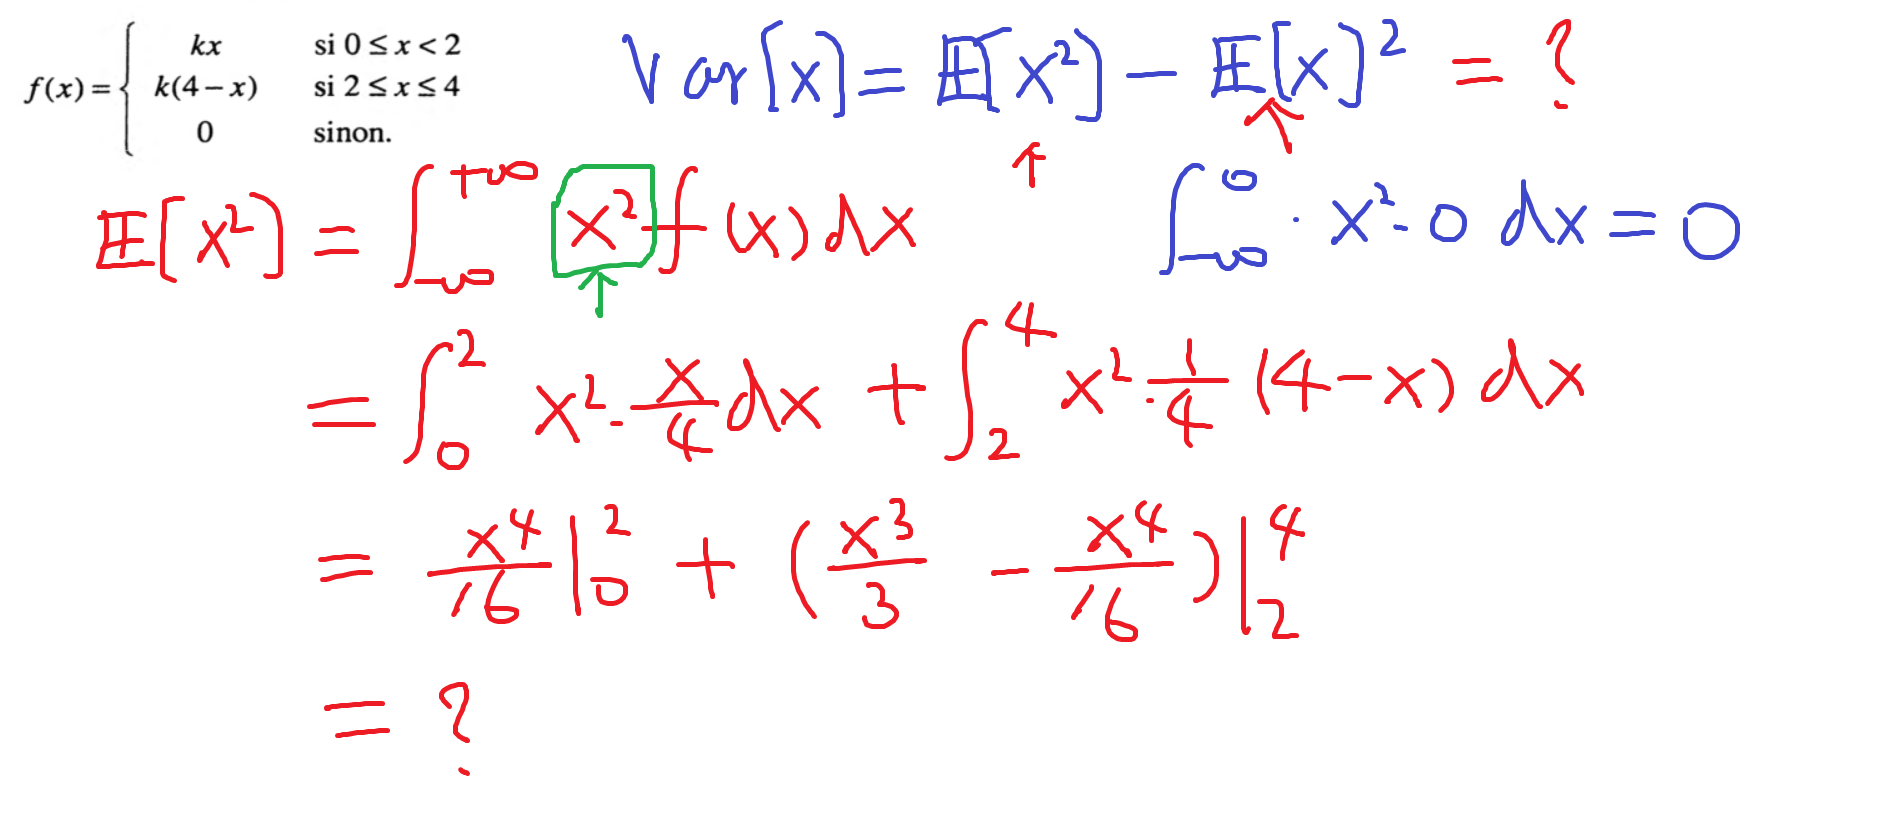 f(x) = { kx si 0 ≤ x < 2
k(4 − x) si 2 ≤ x ≤ 4
0 sinon.
Var[x] = 𝔼[x²] − 𝔼[x]² = ?
↑ ↑
𝔼[x²] = ∫_{-∞}^{+∞} x² f(x) dx
↑
∫_{-∞}^{0} · x² · 0 dx = 0
= ∫_0^2 x² · x/4 dx + ∫_2^4 x² · 1/4 (4 − x) dx
= x⁴/16 |_0^2 + (x³/3 − x⁴/16) |_2^4
= ?